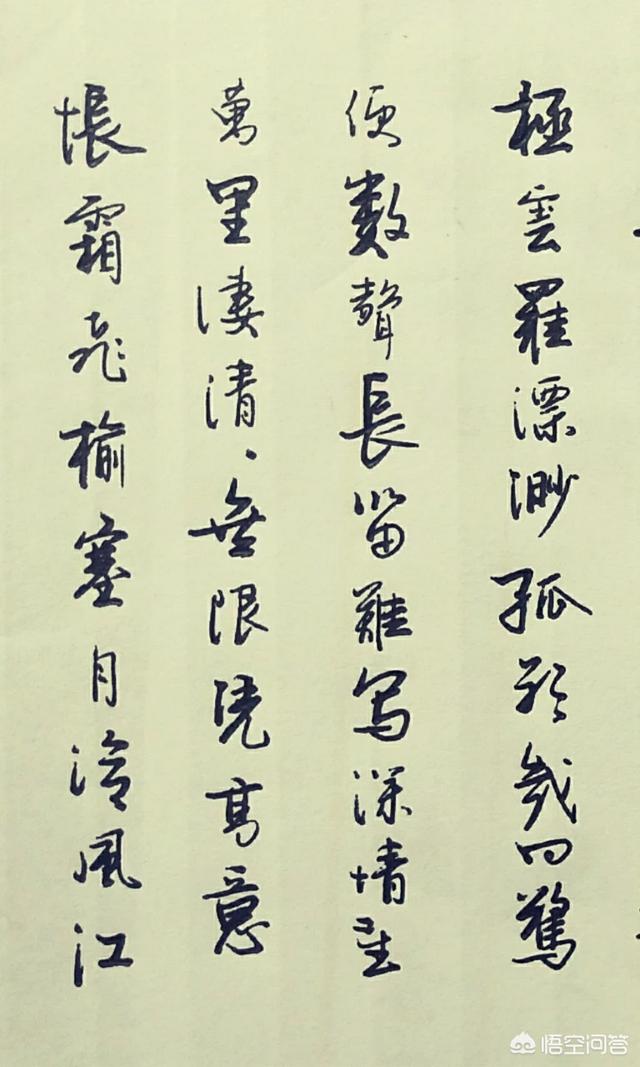 悵霜飛榆塞月冷風江
萬里淒清、無限凭高意
便數聲長笛難寫深情望
極雲羅漂渺孤影幾回驚
悟空问答